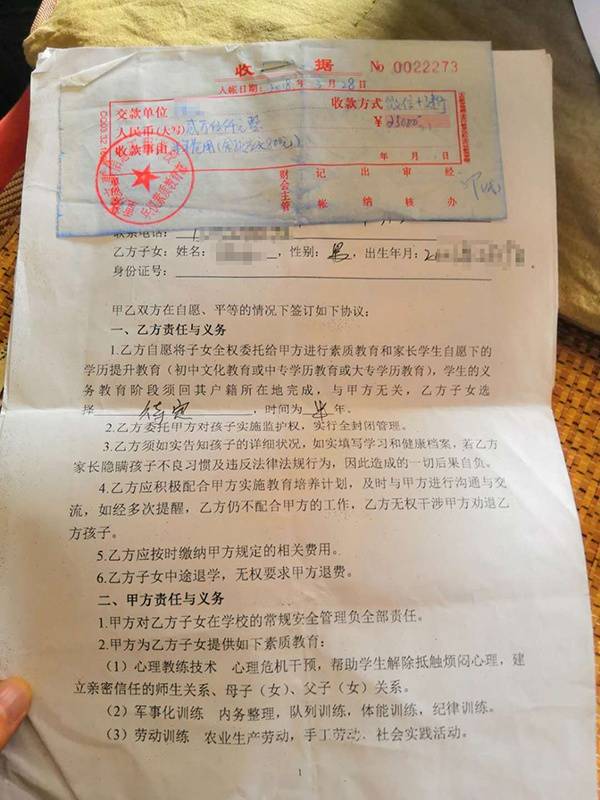 收 据 No 0022273
入帐日期：2018年5月28日
交款单位 收款方式 微信+建行
人民币(大写) 贰万伍仟元整 ￥25000
收款事由
年 月 日
财会主管 记帐 出纳 审核 经办
联系电话：
乙方子女：姓名： ，性别：男，出生年月：2
身份证号：
甲乙双方在自愿、平等的情况下签订如下协议：
一、乙方责任与义务
1.乙方自愿将子女全权委托给甲方进行素质教育和家长学生自愿下的
学历提升教育（初中文化教育或中专学历教育或大专学历教育），学生的义
务教育阶段须回其户籍所在地完成，与甲方无关，乙方子女选
择 待定 ，时间为 半 年。
2.乙方委托甲方对孩子实施监护权，实行全封闭管理。
3.乙方须如实告知孩子的详细状况，如实填写学习和健康档案，若乙方
家长隐瞒孩子不良习惯及违反法律法规行为，因此造成的一切后果自负。
4.乙方应积极配合甲方实施教育培养计划，及时与甲方进行沟通与交
流，如经多次提醒，乙方仍不配合甲方的工作，乙方无权干涉甲方劝退乙
方孩子。
5.乙方应按时缴纳甲方规定的相关费用。
6.乙方子女中途退学，无权要求甲方退费。
二、甲方责任与义务
1.甲方对乙方子女在学校的常规安全管理负全部责任。
2.甲方为乙方子女提供如下素质教育：
（1）心理教练技术 心理危机干预，帮助学生解除抵触烦闷心理，建
立亲密信任的师生关系、母子（女）、父子（女）关系。
（2）军事化训练 内务整理，队列训练，体能训练，纪律训练。
（3）劳动训练 农业生产劳动，手工劳动、社会实践活动。
1